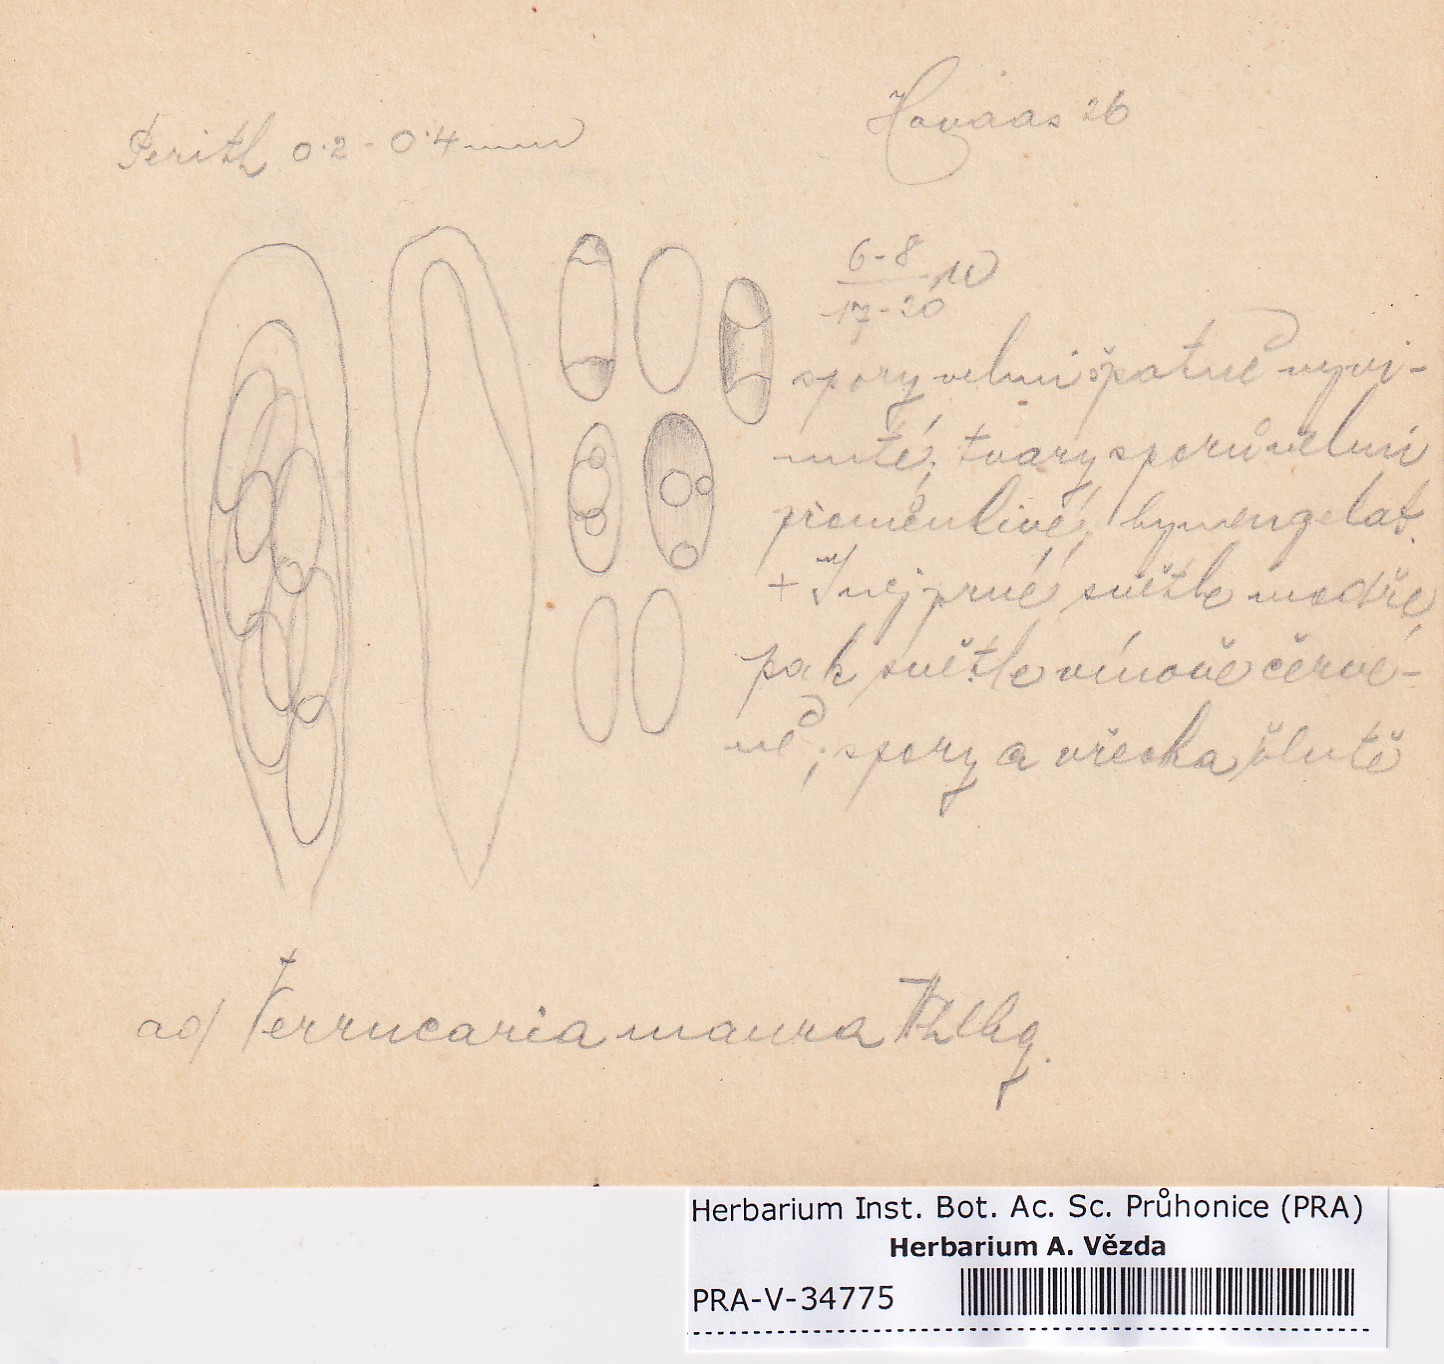 Perith 0·2 - 0·4 mm
Havaas 26
6-8
17-20 µ
spory velmi špatně vyvi-
nuté; tvary sporů velmi
proměnlivé; hymen. gelat.
+ J nejprvé světle modře,
pak světle vínově červe-
ně; spory a vřecka žlutě
ad Verrucaria maura Whlbg.
Herbarium Inst. Bot. Ac. Sc. Průhonice (PRA)
Herbarium A. Vězda
PRA-V-34775